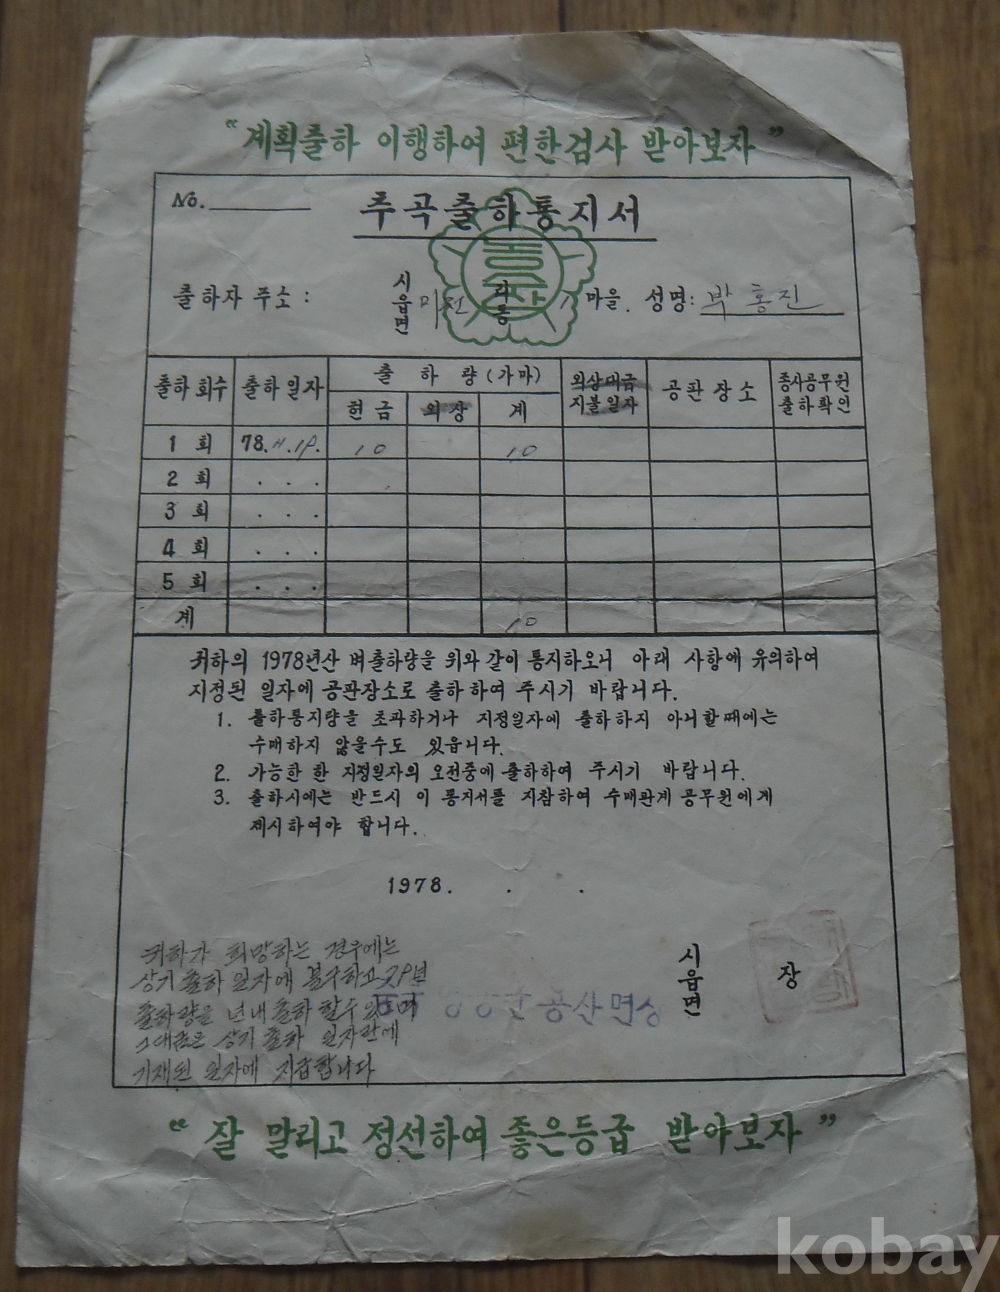 "계획출하 이행하여 편한검사 받아보자"
No.
추곡출하통지서
증산
출하자 주소 : 시읍면 리동 마을. 성명: 박홍진
출하 회수 출하일자 출 하 량 (가마) 의상대금 지불일자 공판장소 종사공무원 출하확인
현 금 의상 계
1 회 78. 11. 18. 10 10
2 회 . . .
3 회 . . .
4 회 . . .
5 회 . . .
계 10
귀하의 1978년산 벼출하량을 위와 같이 통지하오니 아래 사항에 유의하여
지정된 일자에 공판장소로 출하하여 주시기 바랍니다.
1. 출하통지량을 초과하거나 지정일자에 출하하지 아니할때에는
수매하지 않을수도 있읍니다.
2. 가능한 한 지정일자의 오전중에 출하하여 주시기 바랍니다.
3. 출하시에는 반드시 이 통지서를 지참하여 수매관계 공무원에게
제시하여야 합니다.
1978. . .
귀하가 희망하는 경우에는
상기 출하 일자에 불구하고 78년
출하량을 년내 출하 할수 있으며
그대금은 상기 출하 일자란에
기재된 일자에 지급합니다
시읍면 장
공산면
"잘 말리고 정선하여 좋은등급 받아보자"
kobay